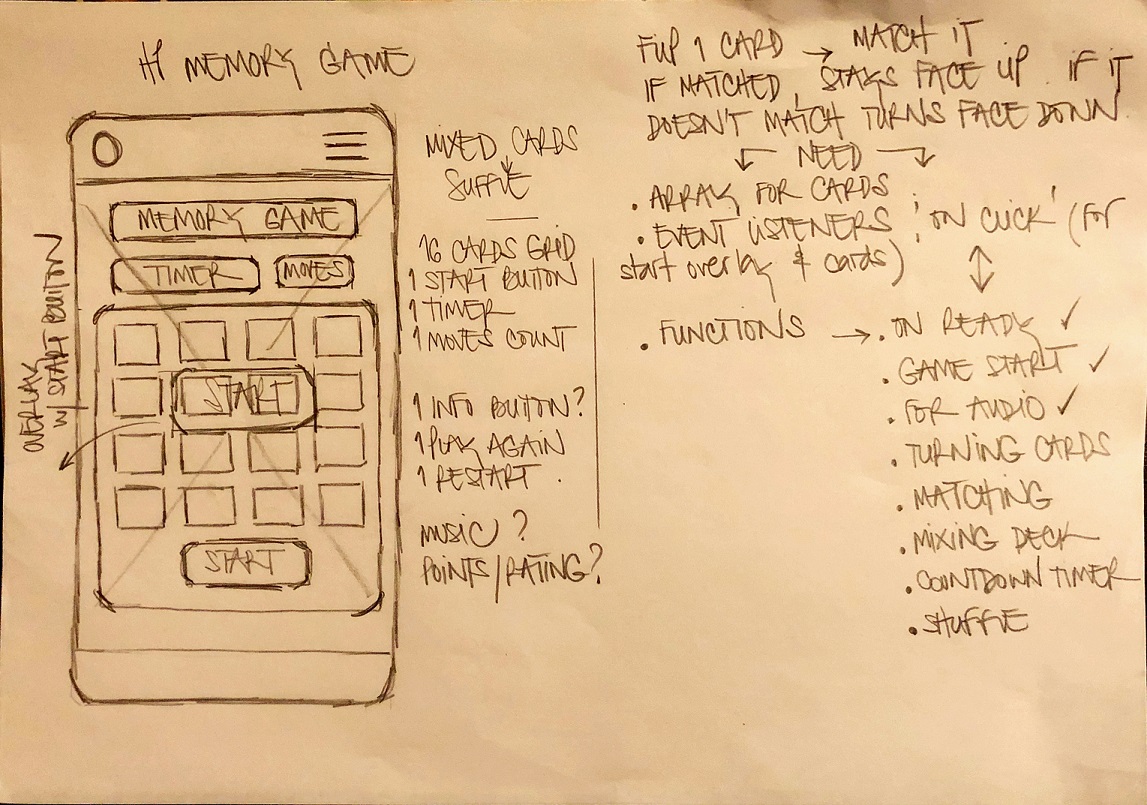 HP MEMORY GAME
MEMORY GAME
TIMER
MOVES
START
START
OVERLAY
W/ START BUTTON
MIXED CARDS
SUFFLE
16 CARDS GRID
1 START BUTTON
1 TIMER
1 MOVES COUNT
1 INFO BUTTON?
1 PLAY AGAIN
1 RESTART.
MUSIC?
POINTS/RATING?
FLIP 1 CARD → MATCH IT
IF MATCHED, STAYS FACE UP. IF IT
DOESN'T MATCH TURNS FACE DOWN.
NEED
• ARRAY FOR CARDS
• EVENT LISTENERS ; 'ON CLICK' (for
start overlay & cards)
• FUNCTIONS → • ON READY ✓
• GAME START ✓
• FOR AUDIO ✓
• TURNING CARDS
• MATCHING
• MIXING DECK
• COUNTDOWN TIMER
• SHUFFLE